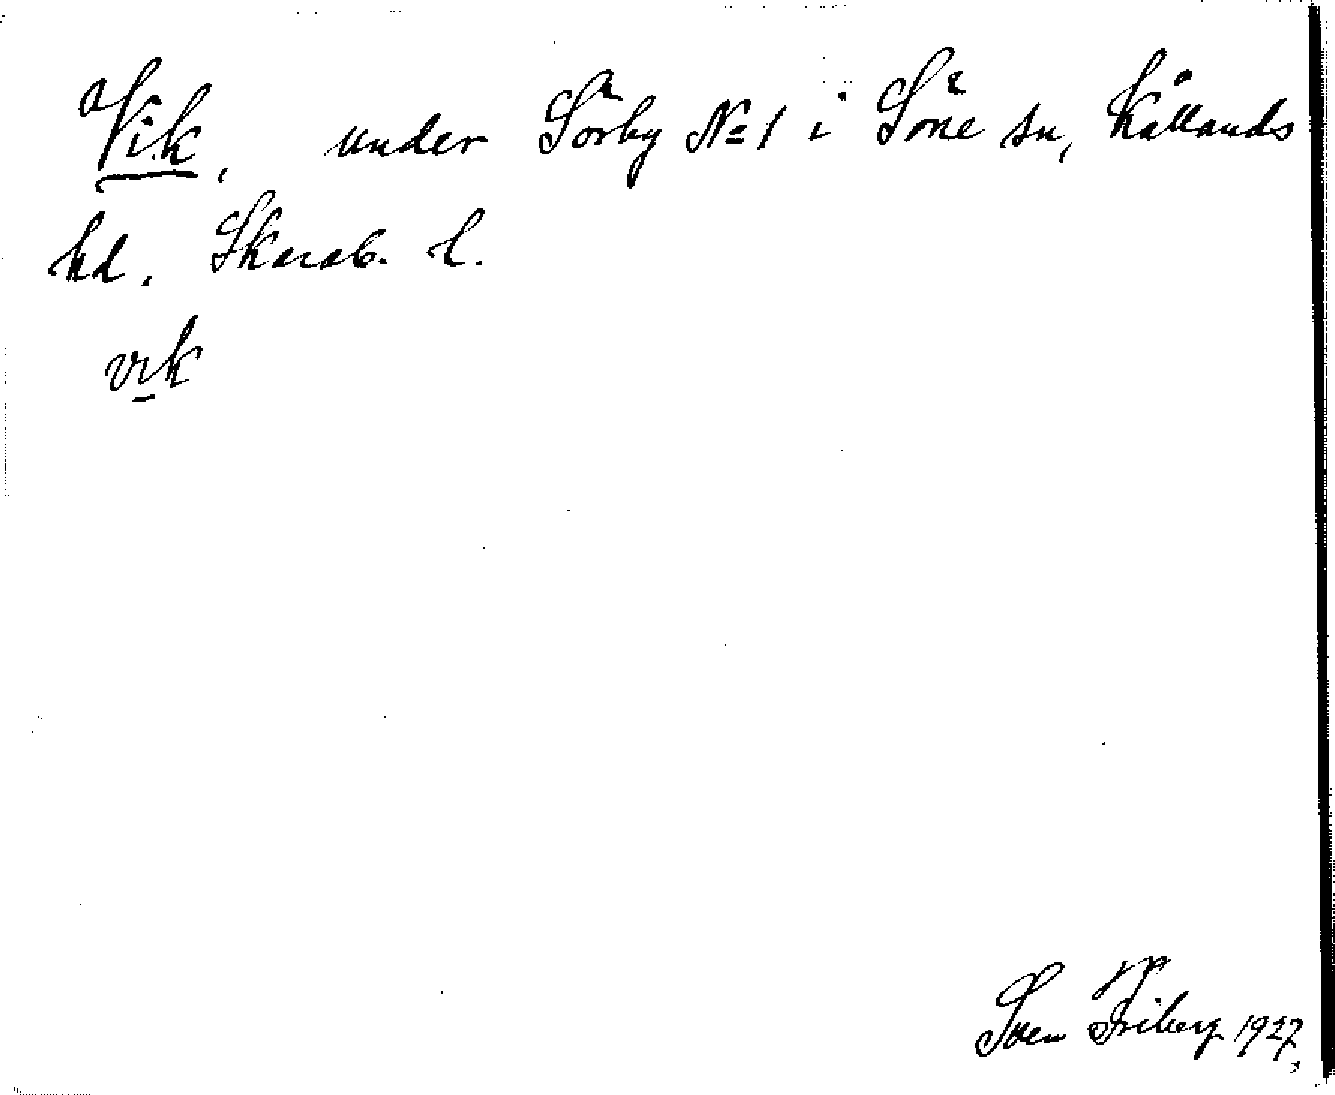 Vik, under Sörby № 1 i Söne sn, Kållands
hd. Skarab. l.
vik
Sven Friberg 1927.